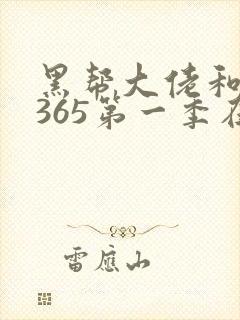 黑帮大佬和
365第一季在
雷应山